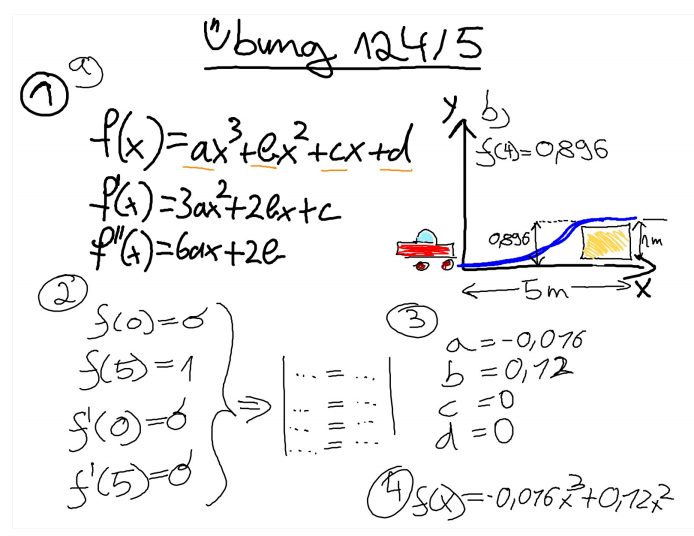 Übung 124/5
① a)
f(x)=ax³+bx²+cx+d
f'(x)=3ax²+2bx+c
f''(x)=6ax+2b
y b)
f(4)=0,896
0,896
1m
5m x
②
f(0)=0
f(5)=1
f'(0)=0
f'(5)=0
⇒
... = ...
... = ...
... = ...
... = ...
③
a=-0,016
b=0,12
c=0
d=0
④ f(x)=-0,016x³+0,12x²